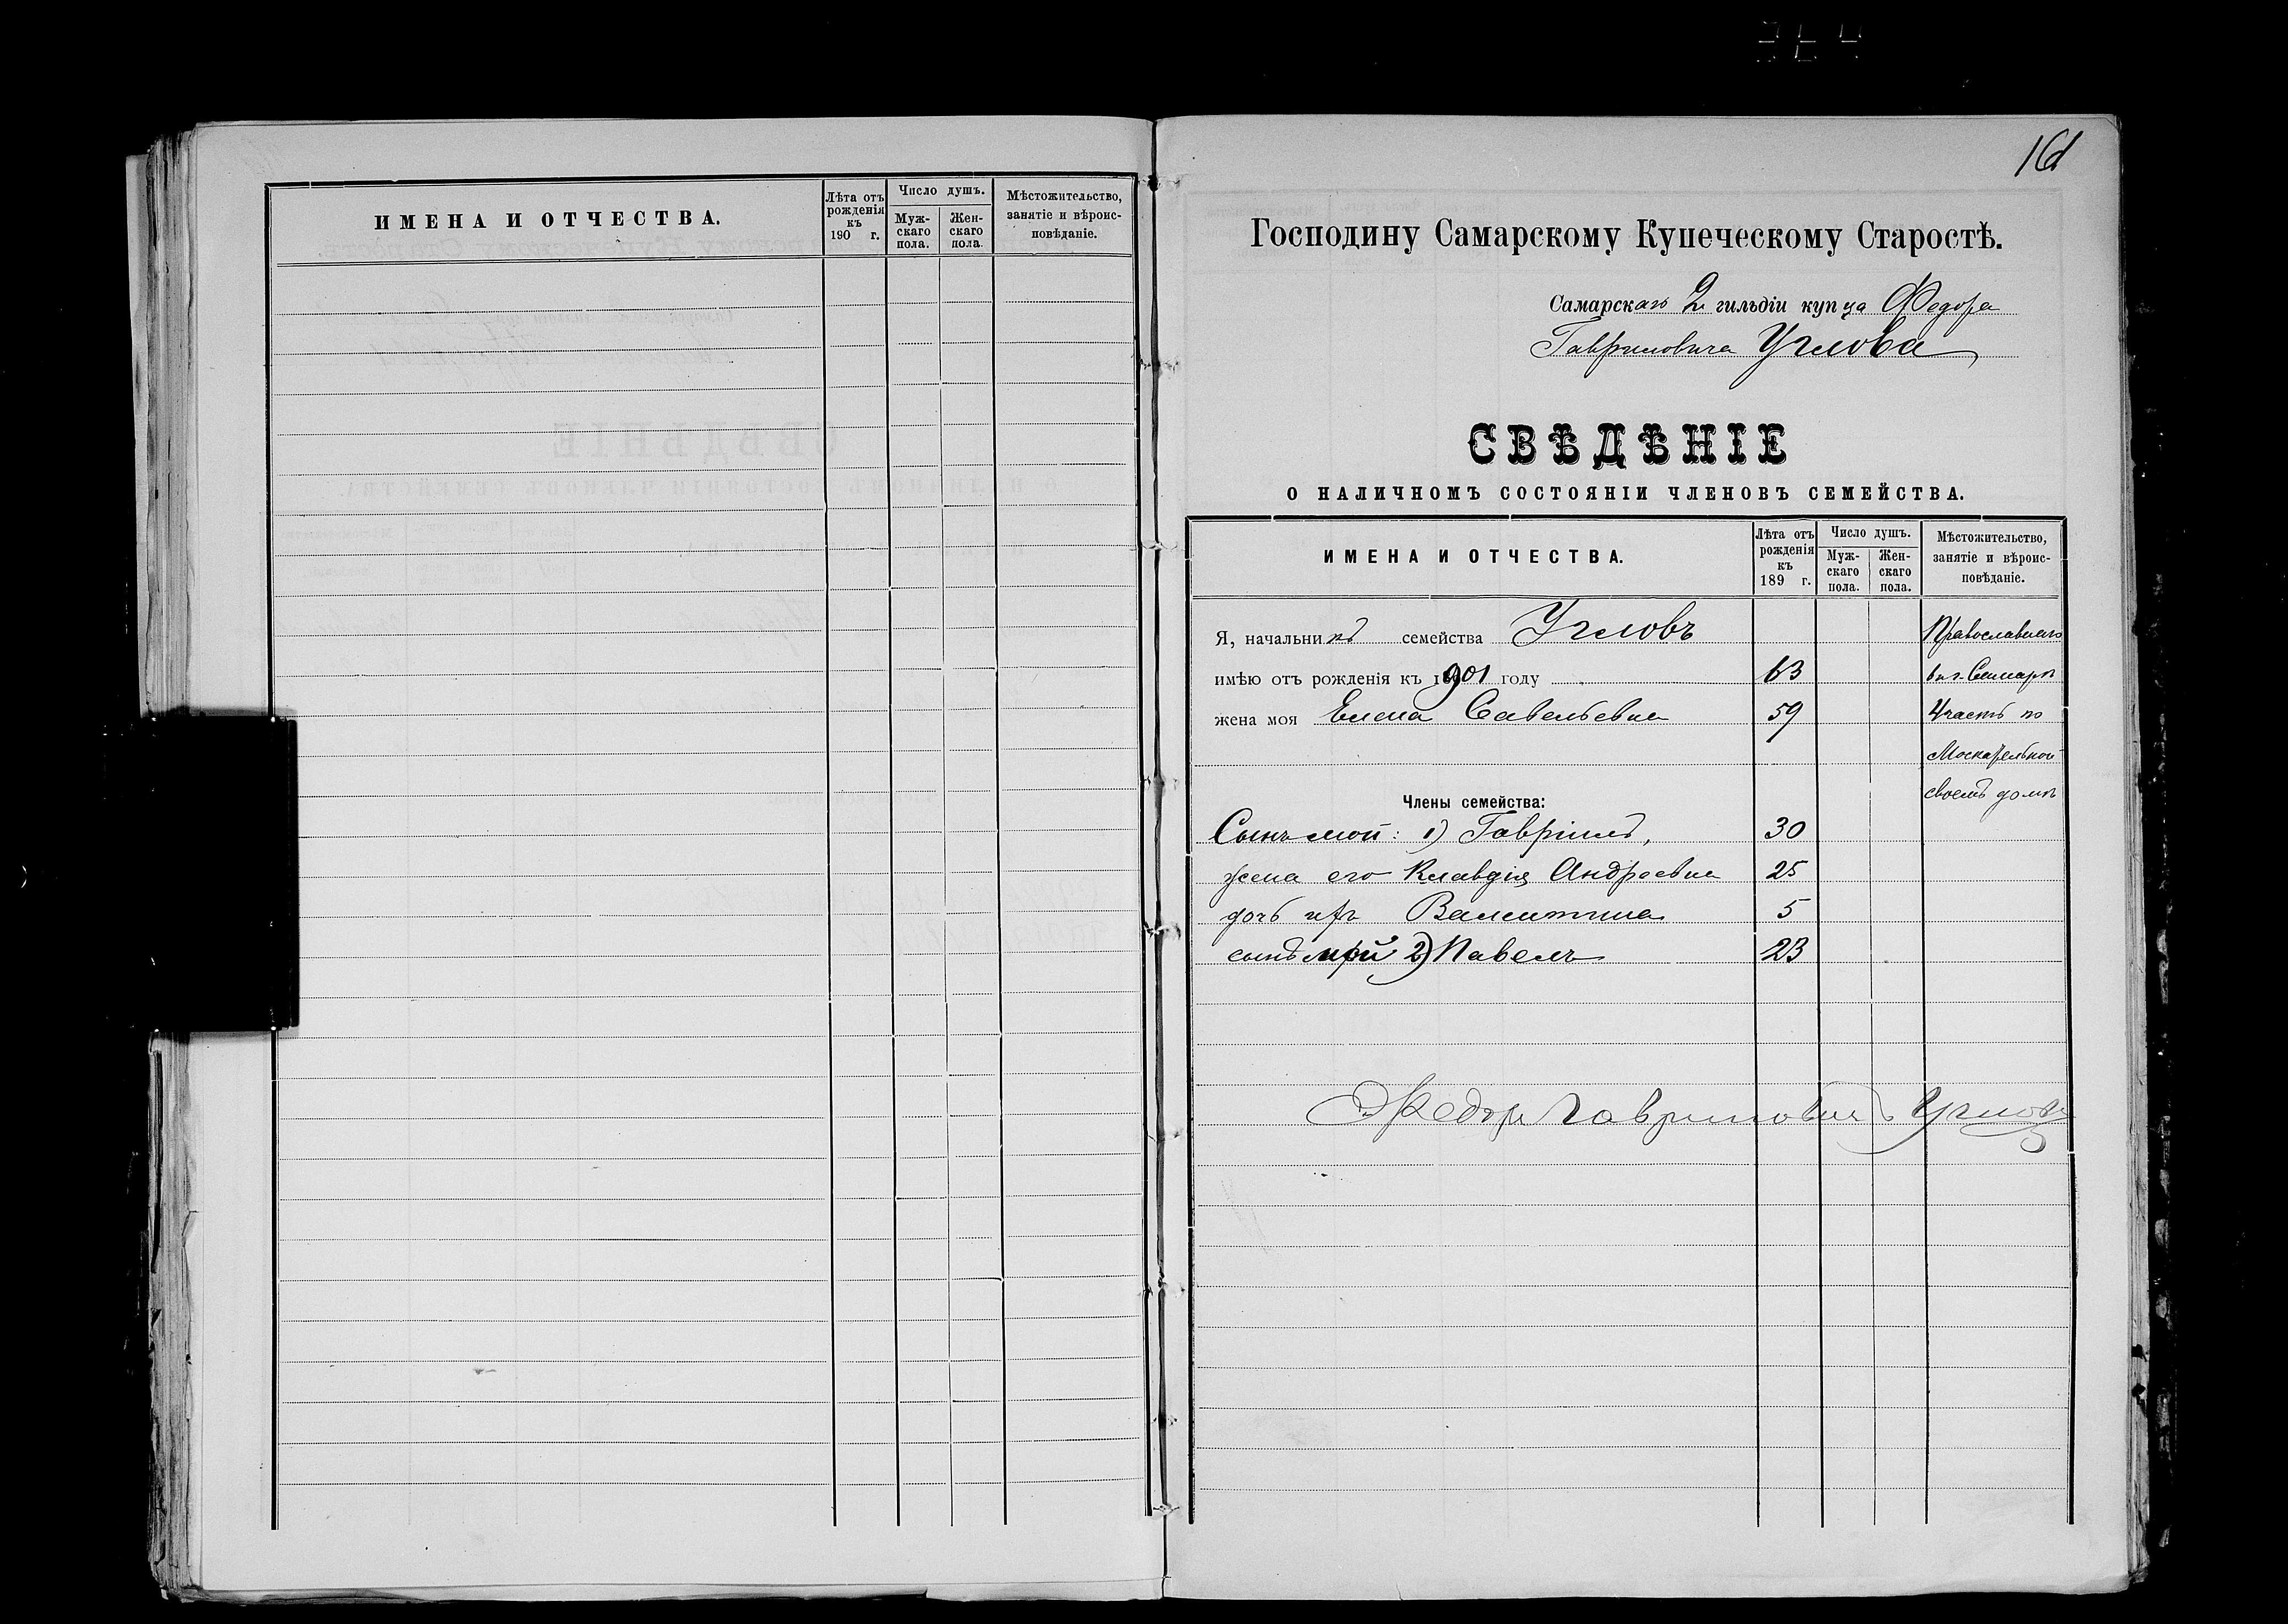 ИМЕНА И ОТЧЕСТВА.
Лѣта отъ рожденія къ 190 г.
Число душъ.
Мужскаго пола.
Женскаго пола.
Мѣстожительство, занятіе и вѣроисповѣданіе.
Господину Самарскому Купеческому Старостѣ.
Самарскаго 2 гильдіи купца Федора
Гавриловича Углова
СВѢДѢНІЕ
О НАЛИЧНОМЪ СОСТОЯНІИ ЧЛЕНОВЪ СЕМЕЙСТВА.
ИМЕНА И ОТЧЕСТВА.
Лѣта отъ рожденія къ 189 г.
Число душъ.
Мужскаго пола.
Женскаго пола.
Мѣстожительство, занятіе и вѣроисповѣданіе.
Я, начальникъ семейства Угловъ Православнаго
имѣю отъ рожденія къ 1901 году 63 в г. Самарѣ
жена моя Елена Савельевна 59 4 часть по
Москательной
своемъ домѣ
Члены семейства:
Сынъ мой: 1) Гавріилъ, 30
жена его Клавдія Андреевна 25
дочь ихъ Валентина 5
сынъ мой 2) Павелъ 23
Федоръ Гавриловичъ Угловъ